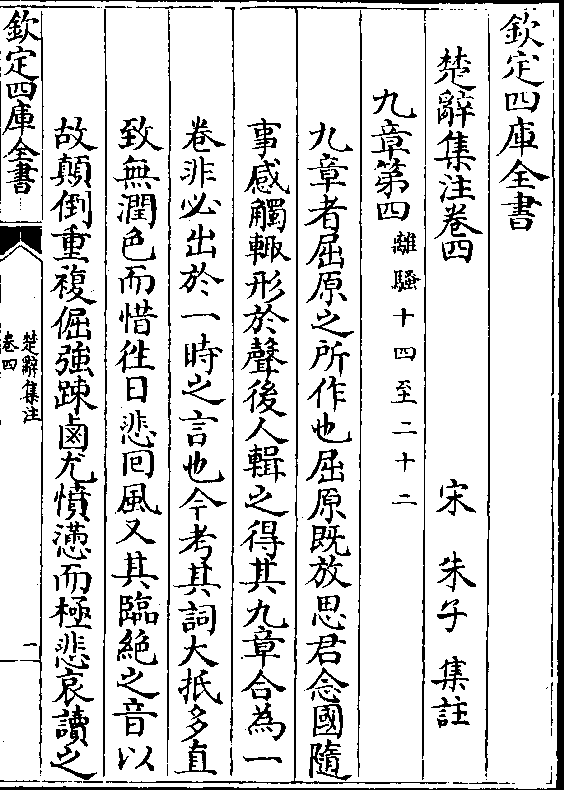 欽定四庫全書
楚辭集注卷四
宋 朱子 集註
九章第四離騷十四至二十二
九章者屈原之所作也屈原既放思君念國隨
事感觸輙形於聲後人輯之得其九章合為一
卷非必出於一時之言也今考其詞大抵多直
致無潤色而惜徃日悲囘風又其臨絶之音以
故顛倒重複倔強踈鹵尤憤懣而極悲哀讀之
欽定四庫全書
楚辭集注
卷四
一